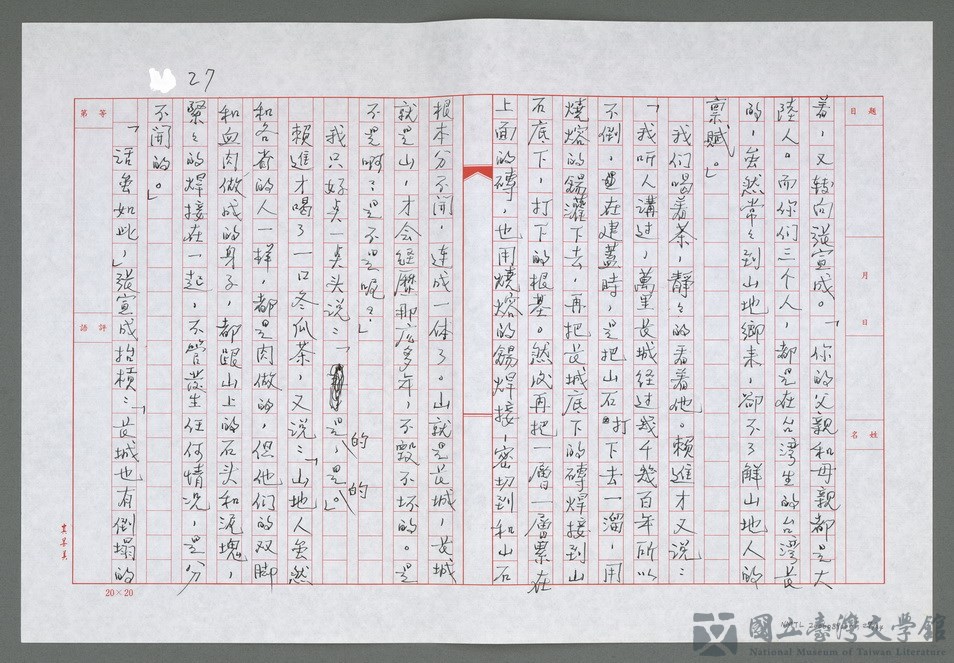 27
題目
月
日
姓名
著，又轉向張宣成。「你的父親和母親都是大
陸人。而你们三个人，都是在台湾生的台湾長
的，虽然常々到山地鄉来，卻不了解山地人的
稟賦。」
我们喝着茶，静々的看着他。賴進才又说：
「我听人講过，萬里長城经过或千幾百年所以
不倒，在建蓋時，是把山石打下去一溜，用
燒熔的錫灌下去，再把長城底下的磚焊接到山
石底下，打下的根基。然后再把一層一層累在
上面的磚，也用燒熔的錫焊接，密切到和山石
根本分不開，連成一体了。山就是長城，長城
就是山，才会经歷那麼多年，不毀不坏的。是
不是啊？是不是呢？」
我只好点一点头说：「是的，是的。」
賴進才喝了一口冬瓜茶，又说：「山地人虽然
和各者的人一样，都是肉做的，但他们的双脚
和血肉做成的身子，都跟山上的石头和泥塊，
緊々的焊接在一起，不管發生任何情况，是分
不開的。」
「话虽如此，」張宣成抬槓：「長城也有倒塌的
等第
評語
20×20
國立臺灣文學館
National Museum of Taiwan Literature